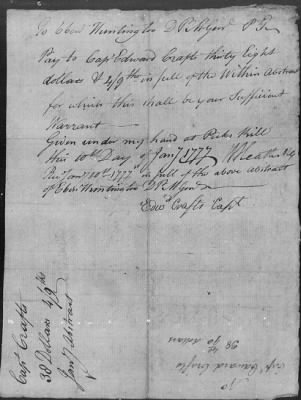 To Eben Huntington D P M Genl
Pay to Capt Edward Crafts thirty Eight
dollars & 4/9ths in full of the Within Abstract
for which this shall be your Sufficient
Warrant
Given under my hand at Peeks Kill
this 10th Day of Jany 1777 W Heath
Recd Jany 10th 1777 in full of the above abstract
of Eben Huntington D P M Genl
Edwd Crafts Capt
Capt Crafts
38 Dollars 4/9ths
Jany Abstract
Capt Edward Crafts
38 dollars